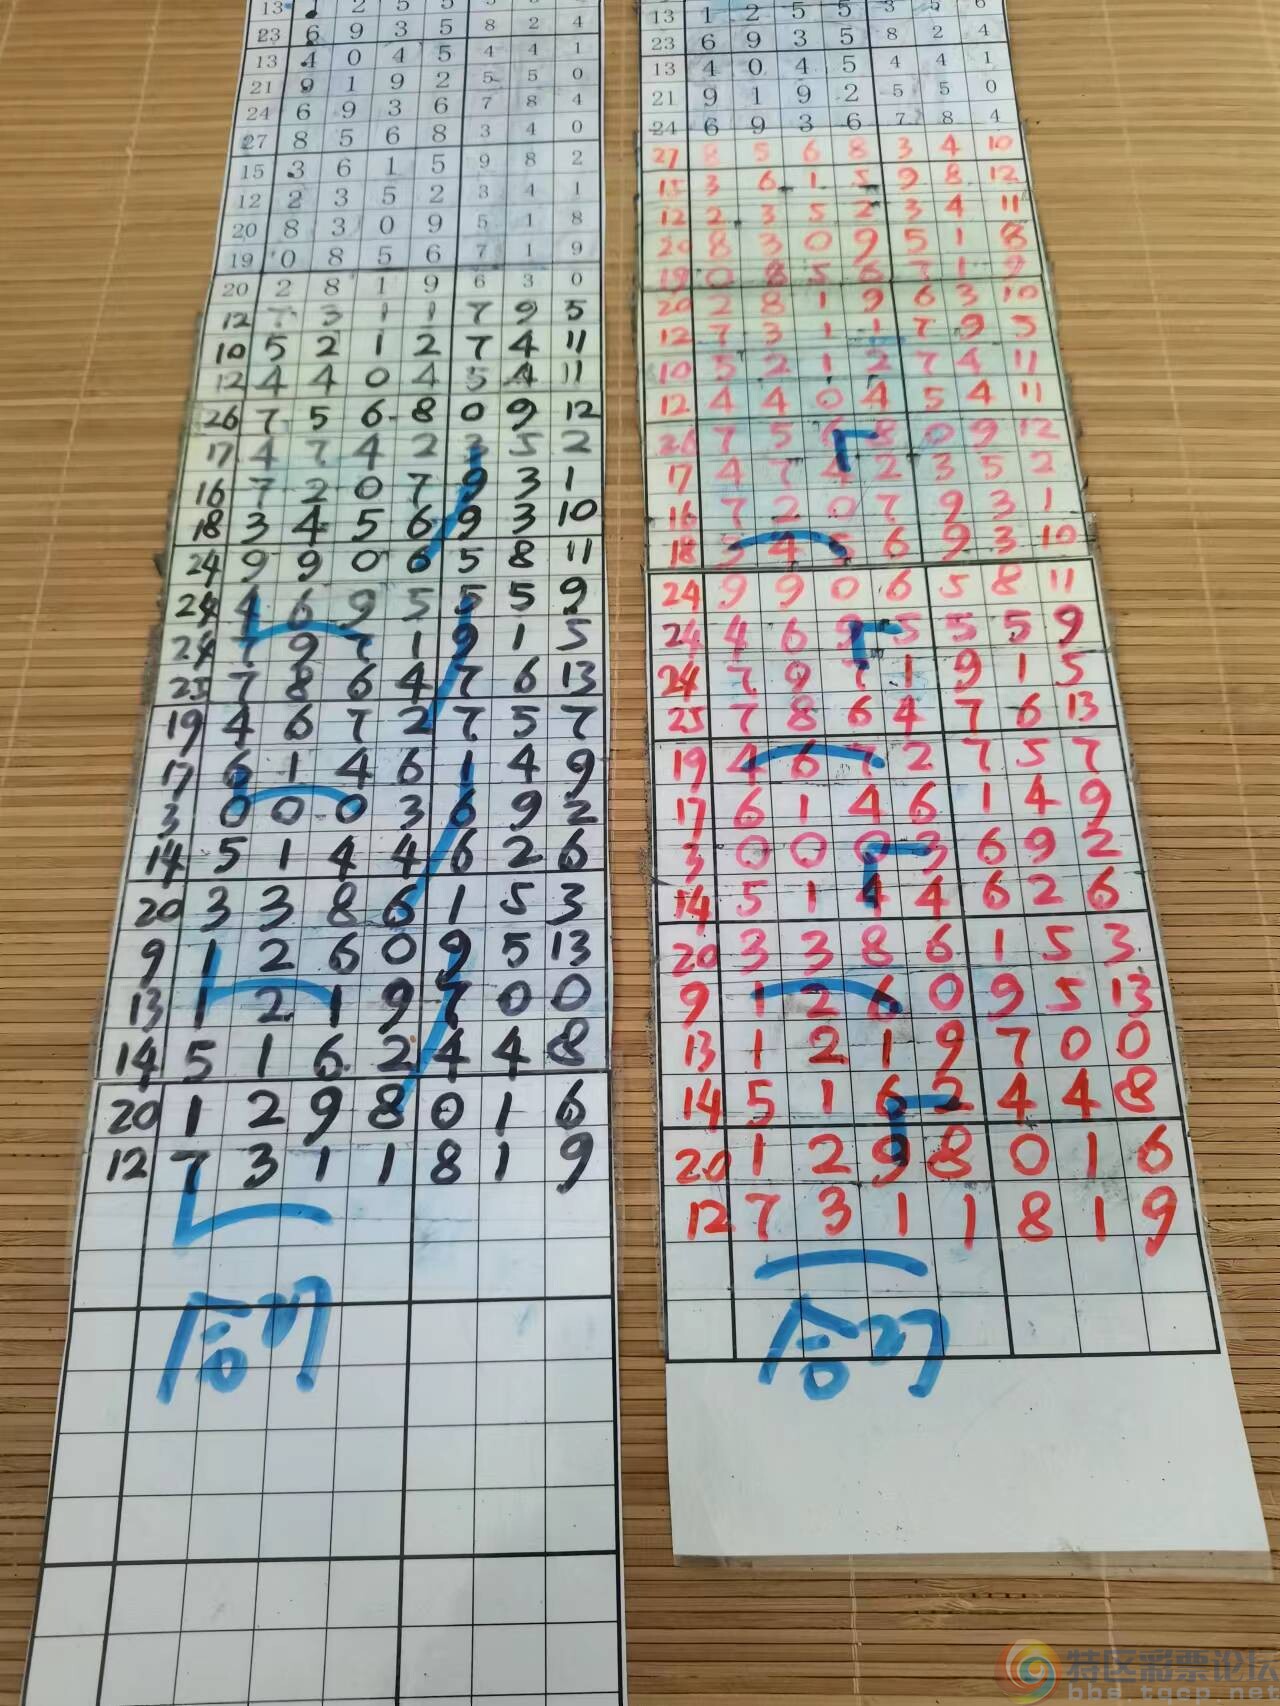 13 1 2 5 5
23 6 9 3 5 8 2 4
13 4 0 4 5 4 4 1
21 9 1 9 2 5 5 0
24 6 9 3 6 7 8 4
27 8 5 6 8 3 4 0
15 3 6 1 5 9 8 2
12 2 3 5 2 3 4 1
20 8 3 0 9 5 1 8
19 0 8 5 6 7 1 9
20 2 8 1 9 6 3 0
12 7 3 1 1 7 9 5
10 5 2 1 2 7 4 11
12 4 4 0 4 5 4 11
26 7 5 6 8 0 9 12
17 4 7 4 2 3 5 2
16 7 2 0 7 9 3 1
18 3 4 5 6 9 3 10
24 9 9 0 6 5 8 11
24 4 6 9 5 5 5 9
24 7 9 7 1 9 1 5
25 7 8 6 4 7 6 13
19 4 6 7 2 7 5 7
17 6 1 4 6 1 4 9
3 0 0 0 3 6 9 2
14 5 1 4 4 6 2 6
20 3 3 8 6 1 5 3
9 1 2 6 0 9 5 13
13 1 2 1 9 7 0 0
14 5 1 6 2 4 4 8
20 1 2 9 8 0 1 6
12 7 3 1 1 8 1 9
合27
13 1 2 5 5 3 5 6
23 6 9 3 5 8 2 4
13 4 0 4 5 4 4 1
21 9 1 9 2 5 5 0
24 6 9 3 6 7 8 4
27 8 5 6 8 3 4 10
15 3 6 1 5 9 8 12
12 2 3 5 2 3 4 11
20 8 3 0 9 5 1 8
19 0 8 5 6 7 1 9
20 2 8 1 9 6 3 10
12 7 3 1 1 7 9 5
10 5 2 1 2 7 4 11
12 4 4 0 4 5 4 11
26 7 5 6 8 0 9 12
17 4 7 4 2 3 5 2
16 7 2 0 7 9 3 1
18 3 4 5 6 9 3 10
24 9 9 0 6 5 8 11
24 4 6 9 5 5 5 9
24 7 9 7 1 9 1 5
25 7 8 6 4 7 6 13
19 4 6 7 2 7 5 7
17 6 1 4 6 1 4 9
3 0 0 0 3 6 9 2
14 5 1 4 4 6 2 6
20 3 3 8 6 1 5 3
9 1 2 6 0 9 5 13
13 1 2 1 9 7 0 0
14 5 1 6 2 4 4 8
20 1 2 9 8 0 1 6
12 7 3 1 1 8 1 9
合27
特区彩票论坛
bbs.tqcp.net